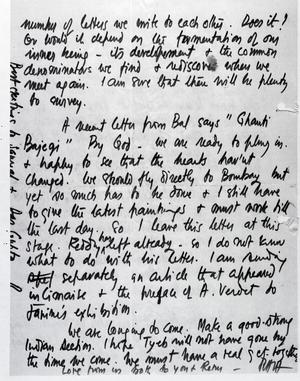 number of letters we write to each other. Does it?
Or would it depend on the fermentation of our
inner being - its development & the common
denominators we find & rediscover when we
meet again. I am sure that there will be plenty
to survey.
A recent letter from Bal says "Ghanti
Bajegi" By God. we are ready to plung in.
& happy to see that the hearts hav'nt
changed. We should fly directly to Bombay but
yet so much has to be done & I still have
to give the latest paintings & must work till
the last day. So I leave this letter at this
stage. left already. so I do not know
what to do with his letter. I am sending
separately, an article that appeared
in Cimaise & the preface of A. Verdet to
Janine's exhibition.
We are longing to come. Make a good strong
Indian section. I hope Tyeb will not have gone by
the time we come. We must have a real get together
Love from us both to you & Renu -